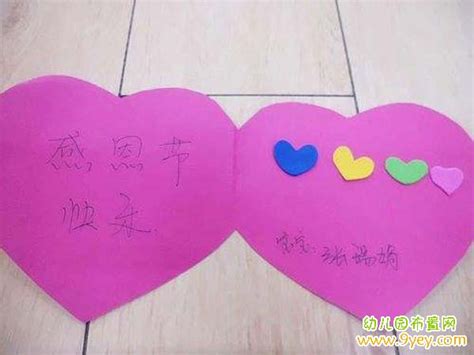 感恩节
快乐
张瑞娟
幼儿园布置网
www.9yey.com